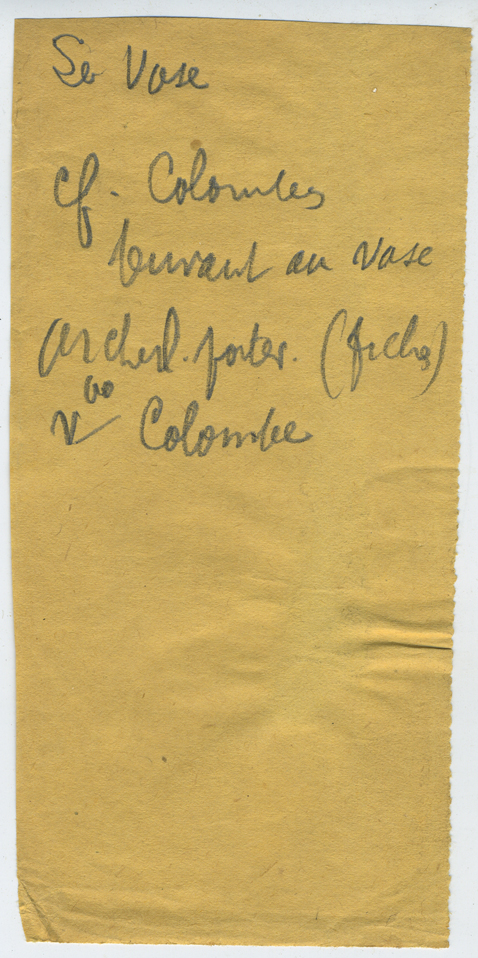 Vase
cf. Colombes
buvant au vase
archeol. poster. (fiches)
v° Colombe